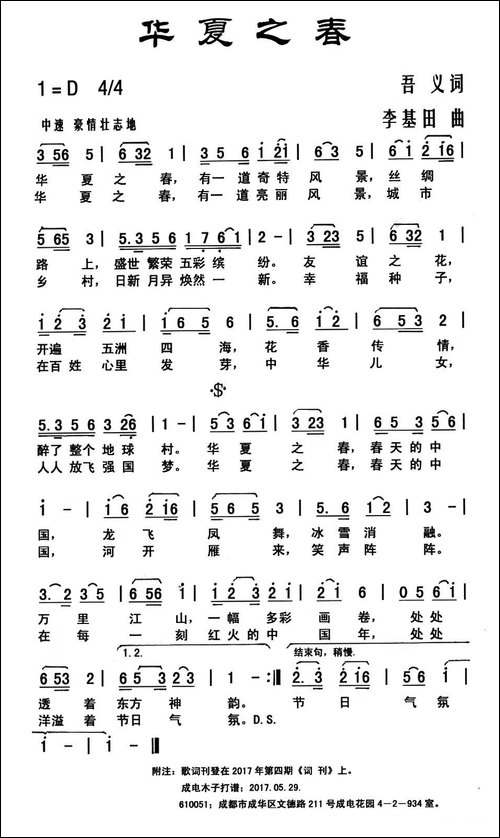 华夏之春
1=D 4/4
吾义词
中速 豪情壮志地
李基田 曲
3 56 5 | 6 32 1 | 3 5 6 1 21 | 6 3 5 | 6 1 2 16 |
华 夏 之 春, 有一 道奇特 风 景, 丝 绸
华 夏 之 春, 有一 道亮丽 风 景, 城 市
5 65 3 | 5.3 5 6 1 7 6 1 | 2 - | 3 23 5 | 6 32 1 |
路 上, 盛世 繁荣 五彩 缤 纷。 友 谊 之 花,
乡 村, 日新 月异 焕然 一 新。 幸 福 种 子,
1 2 3 2 1 | 1 6 5 6 | 5. 6 1 2 | 3 - | 6 5 3 2 |
开遍 五洲 四 海, 花 香 传 情,
在百 姓 心里 发 芽, 中 华 儿 女,
5.3 5 6 3 26 | 1 - | 5 3 6 1 | 3 23 1 | 6 5 3 5 |
醉了 整个 地 球 村。 华 夏 之 春, 春天 的 中
人人 放飞 强 国 梦。 华 夏 之 春, 春天 的 中
1 - | 1 6 2 16 | 5 6 5 3 | 5. 6 1 2 | 3 - |
国, 龙 飞 凤 舞, 冰 雪 消 融。
国, 河 开 雁 来, 笑 声 阵 阵。
3. 2 3 5 | 6 56 1 | 2 3 2 1 2 1 | 2 1 6 | 0 5 6 1 |
万 里 江 山, 一 幅 多彩 画 卷, 处处
在 每 一 刻 红火 的中 国 年, 处处
1. 2.
结束句，稍慢.
6 53 5 | 6 5 3 2 3 | 1 - :| 2. 3 2 16 | 5 6 5 |
透 着 东方 神 韵。 节 日 气 氛
洋溢 着 节日 气 氛。D.S.
1 - | 1 - ‖
附注：歌词刊登在2017年第四期《词 刊》上。
成电木子打谱：2017.05.29.
610051；成都市成华区文德路211号成电花园4-2-934室。